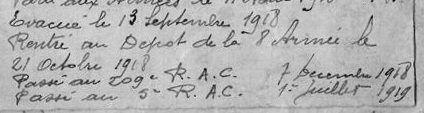 aux Armées
Evacué le 13 Septembre 1918
Rentré au Dépot de la 8 Armée le
21 Octobre 1918
Passé au 209e R. A. C. 7 Décembre 1918
Passé au 5e R. A. C. 1er Juillet 1919